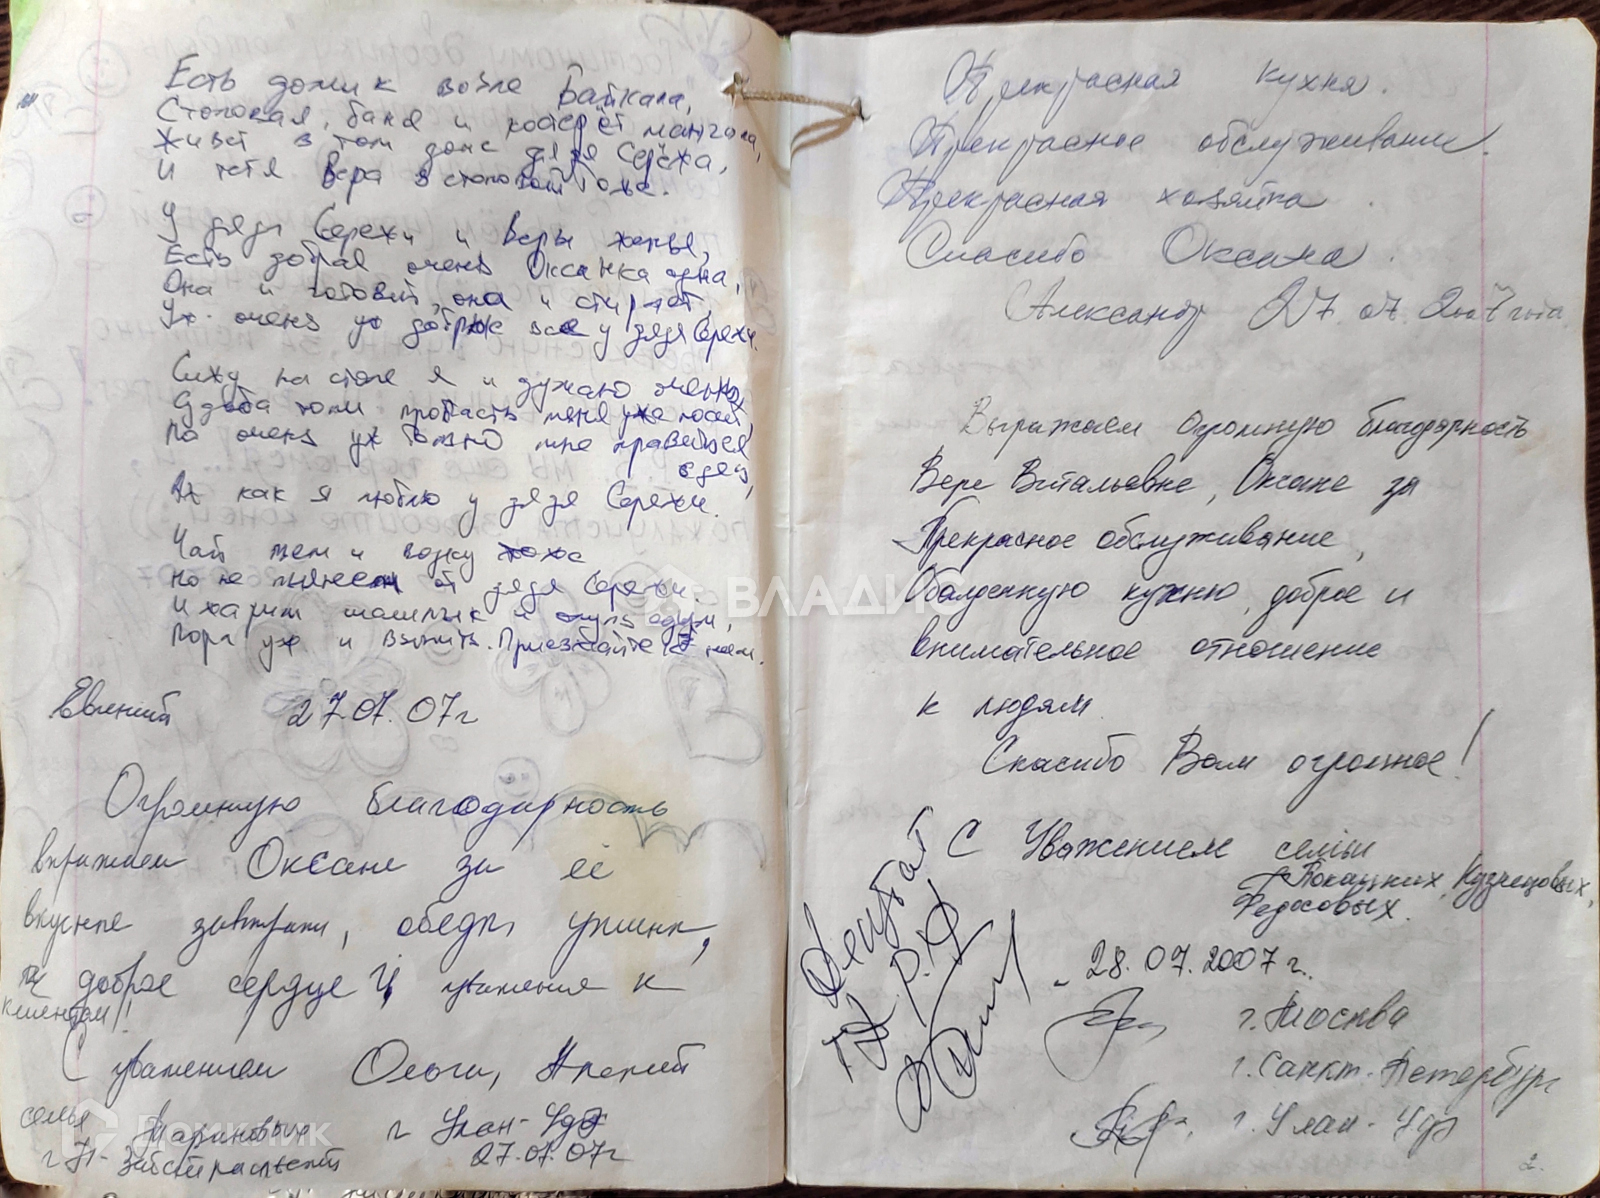 Есть домик возле Байкала,
Столовая, баня и костёр мангала,
Живёт в том доме дядя Серёжа,
И тётя Вера в столовой тоже.
У дяди Сережи и Веры
Есть добрая очень Оксанка одна,
Она и готовит, она и стирает,
Уж очень уж все у дяди Сережи.
Сижу на столе я и думаю
меня уже
но очень уж мне нравится
здесь,
Ах как я люблю у дяди Сережи.
Чай пьем и водку тоже
но не пьянеем от дяди Сережи
И жарим шашлык и
Пора уж и выпить. Приезжайте к нам.
Евгений 27.07.07г
Огромную благодарность
выражаем Оксане за её
вкусные завтраки, обеды, ужины,
доброе сердце и уважения к
клиентам!!
С уважением Ольги,
семья Мариновых г Улан-Удэ
27.07.07г
Прекрасная кухня.
Прекрасное обслуживание.
Прекрасная хозяйка.
Спасибо Оксана.
Александр 27.07.2007 года.
Выражаем огромную благодарность
Вере Витальевне, Оксане за
Прекрасное обслуживание,
Обалденную кухню, доброе и
внимательное отношение
к людям.
Спасибо Вам огромное!
С Уважением семьи
Кузнецовых,
Федосовых.
28.07.2007 г.
г. Москва
г. Санкт-Петербург
г. Улан-Удэ
Депутат
2.
ВЛАДИС
Домклик